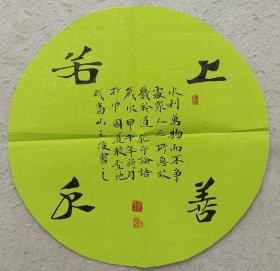 上善
若水
水利萬物而不爭
處衆人之所惡故
幾於道
歲次甲午年
於中國道教聖地
武當山王俊書之